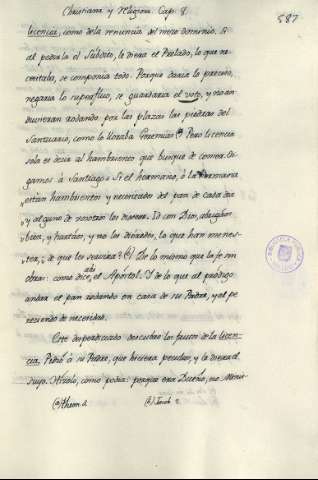 Christiana y religiosa Cap. 8.
587
licencia, como de la renuncia del mero dominio. Si
al pedirla el Subdito, la diera el Prelado, lo que ne-
cesitaba, se componia todo. Porque daria lo preciso,
negaria lo superfluo, se guardaria el voto, y no an-
duvieran rodando por las plazas las piedras del
Santuario, como lo lloraba Geremias (a) Pero licencia
sola es decir al hambriento que busque de comer. Oi-
gamos à Santiago: Si el hermano, ò la hermana
están hambrientos y necesitados del pan de cada dia
y alguno de vosotros les dixere: Id con Dios, abrigaos
bien, y hartaos, y no les diereis, lo que han menes-
ter, de que les servira? (b) De lo mismo que la fe sin
obras: como dice asi el Apóstol. Y de lo que al pródigo
andar el pan rodando en casa de su Padre, y el pe-
reciendo de necesidad.
Este desperdiciado descubre los frutos de la licen-
cia. Pidió à su Padre, que hiciera pedazos, y le diera el
suyo. Hizolo, como podia: porque era Dueño, no Minis-
(a) Thren. 4.
(b) Jacob. 2.